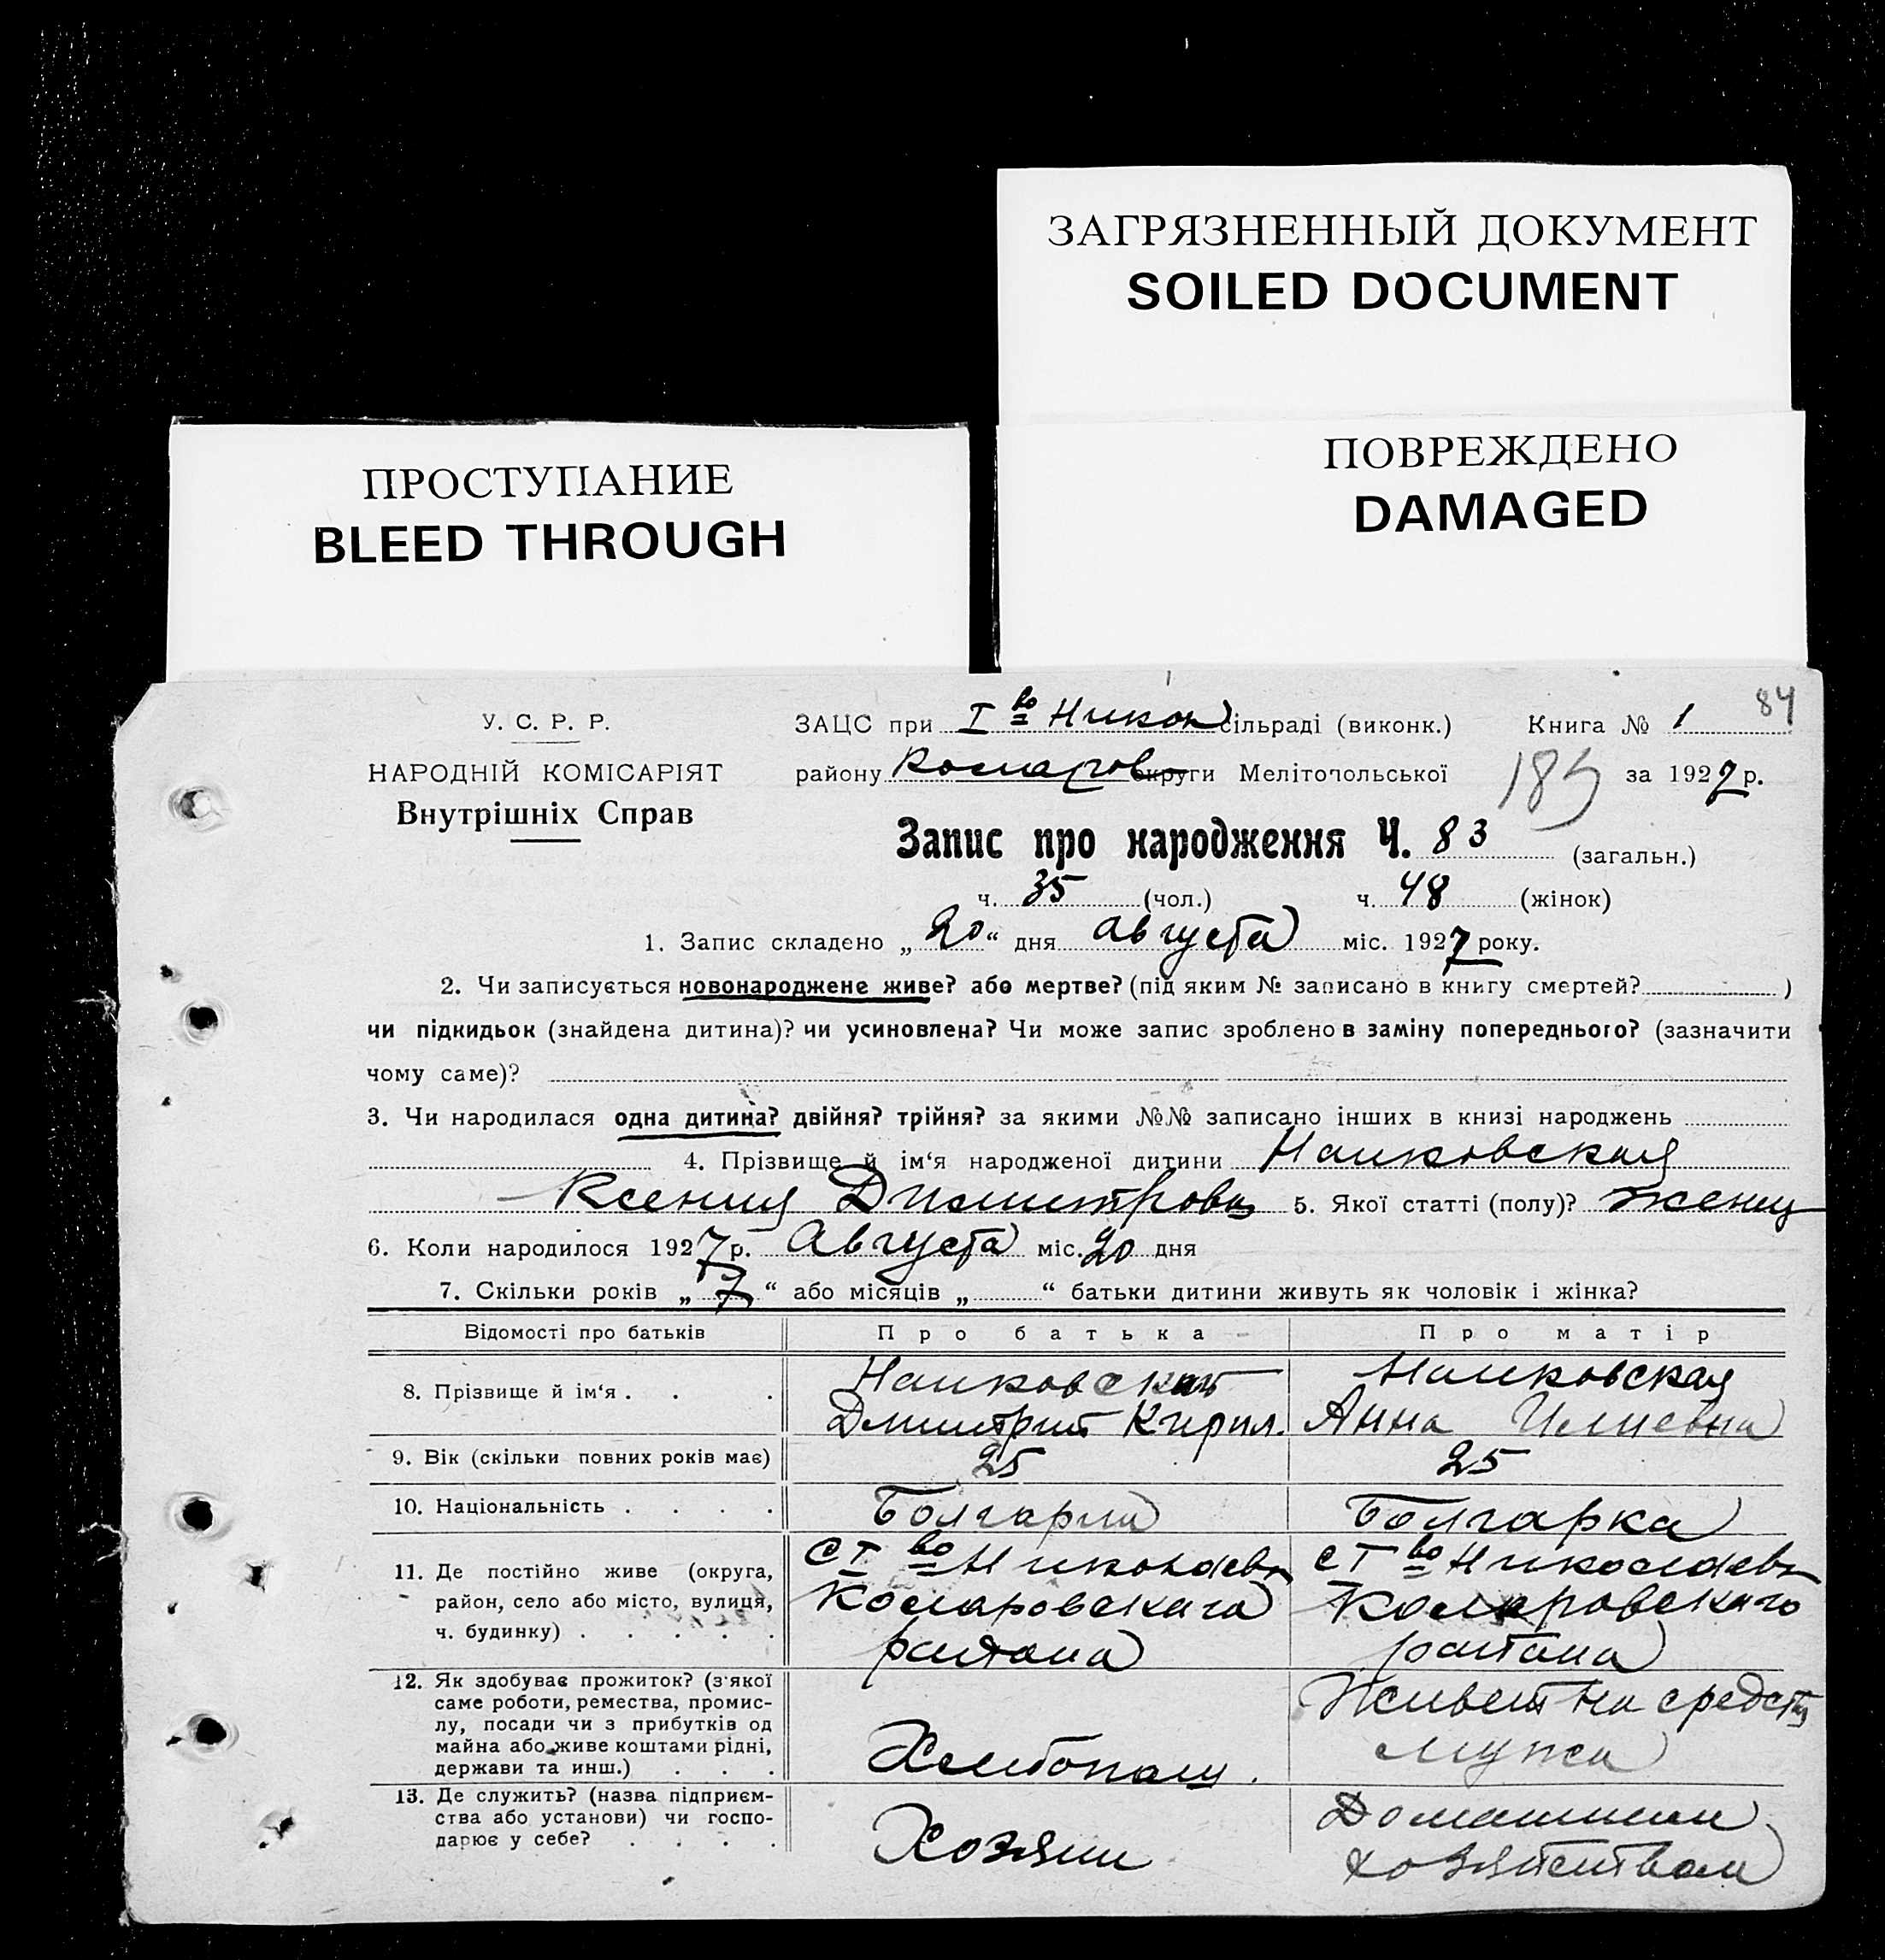 ЗАГРЯЗНЕННЫЙ ДОКУМЕНТ
SOILED DOCUMENT
ПОВРЕЖДЕНО
DAMAGED
ПРОСТУПАНИЕ
BLEED THROUGH
84
У. С. Р. Р.
НАРОДНІЙ КОМІСАРІЯТ
Внутрішніх Справ
ЗАЦС при І во Никол сільраді (виконк.) Книга № 1
району Комаров округи Мелітопольської 185 за 1927 р.
Запис про народження Ч. 83 (загальн.)
ч. 35 (чол.) ч. 48 (жінок)
1. Запис складено „20“ дня августа міс. 1927 року.
2. Чи записується новонароджене живе? або мертве? (під яким № записано в книгу смертей? )
чи підкидьок (знайдена дитина)? чи усиновлена? Чи може запис зроблено в заміну попереднього? (зазначити
чому саме)?
3. Чи народилася одна дитина? двійня? трійня? за якими №№ записано інших в книзі народжень
4. Прізвище й ім‘я народженої дитини
Ксения Димитровна 5. Якої статті (полу)? женщ
6. Коли народилося 1927 р. Августа міс. 20 дня
7. Скільки років „7“ або місяців „ “ батьки дитини живуть як чоловік і жінка?
Відомості про батьків Про батька Про матір
8. Прізвище й ім‘я .
Дмитрий Кирил. Анна Илиевна
9. Вік (скільки повних років має) 25 25
10. Національність . Болгарин Болгарка
11. Де постійно живе (округа, район, село або місто, вулиця, ч. будинку) .
с І во Николаевк с І во Николаевк
Комаровскаго Комаровскаго
района района
12. Як здобуває прожиток? (з‘якої саме роботи, ремества, промислу, посади чи з прибутків од майна або живе коштами рідні, держави та инш.) .
Хлебопаш. Живет на средств
мужа
13. Де служить? (назва підприємства або установи) чи господарює у себе? .
Хозяин Домашним
хозяйством